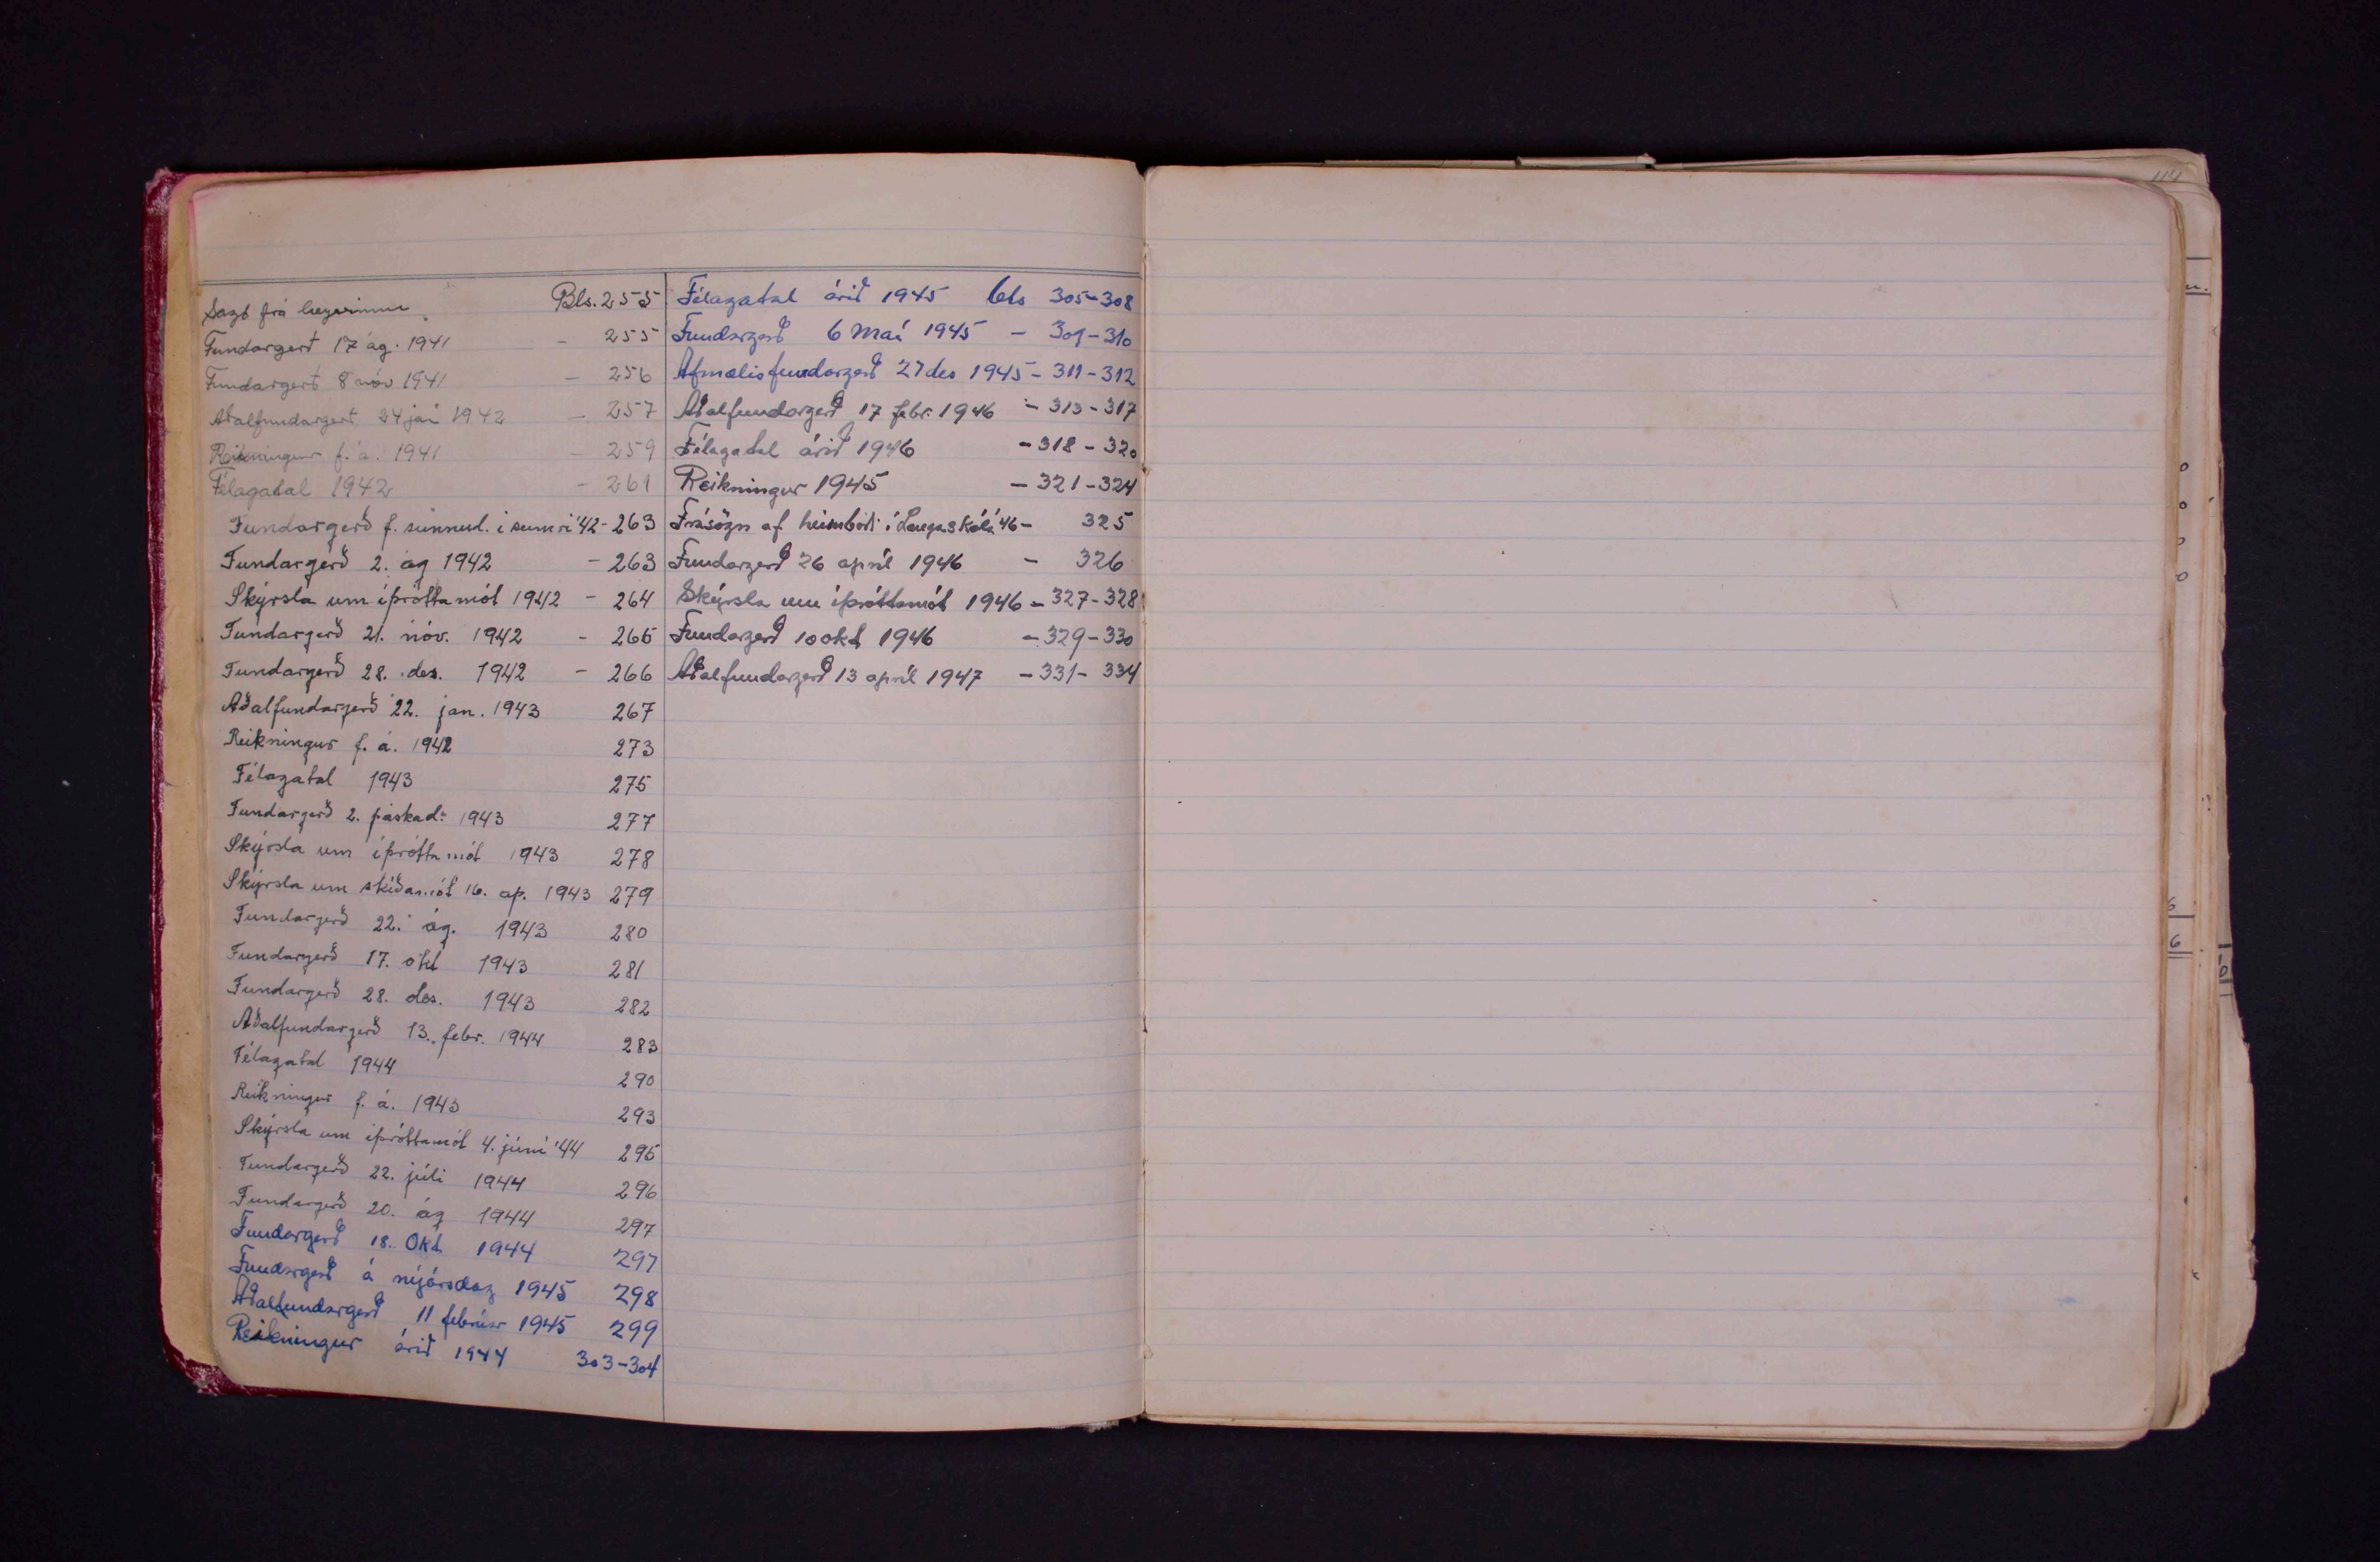 Sagt frá Bls. 255
Fundargerð 17 ág. 1941 - 255
Fundargerð 8 nóv 1941 - 256
Aðalfundargerð 24 jan 1942 - 257
Reikningur f. á. 1941 - 259
Félagatal 1942 - 261
Fundargerð f. sunnud. í sumri '42 - 263
Fundargerð 2. ág 1942 - 263
Skýrsla um íþróttamót 1942 - 264
Fundargerð 21. nóv. 1942 - 265
Fundargerð 28. des. 1942 - 266
Aðalfundargerð 22. jan. 1943 267
Reikningur f. á. 1942 273
Félagatal 1943 275
Fundargerð 2. páskad. 1943 277
Skýrsla um íþróttamót 1943 278
Skýrsla um skíðamót 16. ap. 1943 279
Fundargerð 22. ág. 1943 280
Fundargerð 17. okt 1943 281
Fundargerð 28. des. 1943 282
Aðalfundargerð 13. febr. 1944 283
Félagatal 1944 290
Reikningur f. á. 1943 293
Skýrsla um íþróttamót 4. júní '44 295
Fundargerð 22. júlí 1944 296
Fundargerð 20. ág 1944 297
Fundargerð 18. Okt 1944 297
Fundargerð á nýjársdag 1945 298
Aðalfundargerð 11 febrúar 1945 299
Reikningur árið 1944 303-304
Félagatal árið 1945 bls 305-308
Fundargerð 6 Maí 1945 - 309-310
Afmælisfundargerð 27 des 1945 - 311-312
Aðalfundargerð 17 febr. 1946 - 313-317
Félagatal árið 1946 - 318-320
Reikningur 1945 - 321-324
Frásögn af heimboði í Laugaskóla '46 - 325
Fundargerð 26 apríl 1946 - 326
Skýrsla um íþróttamót 1946 - 327-328
Fundargerð 10 okt 1946 - 329-330
Aðalfundargerð 13 apríl 1947 - 331-334